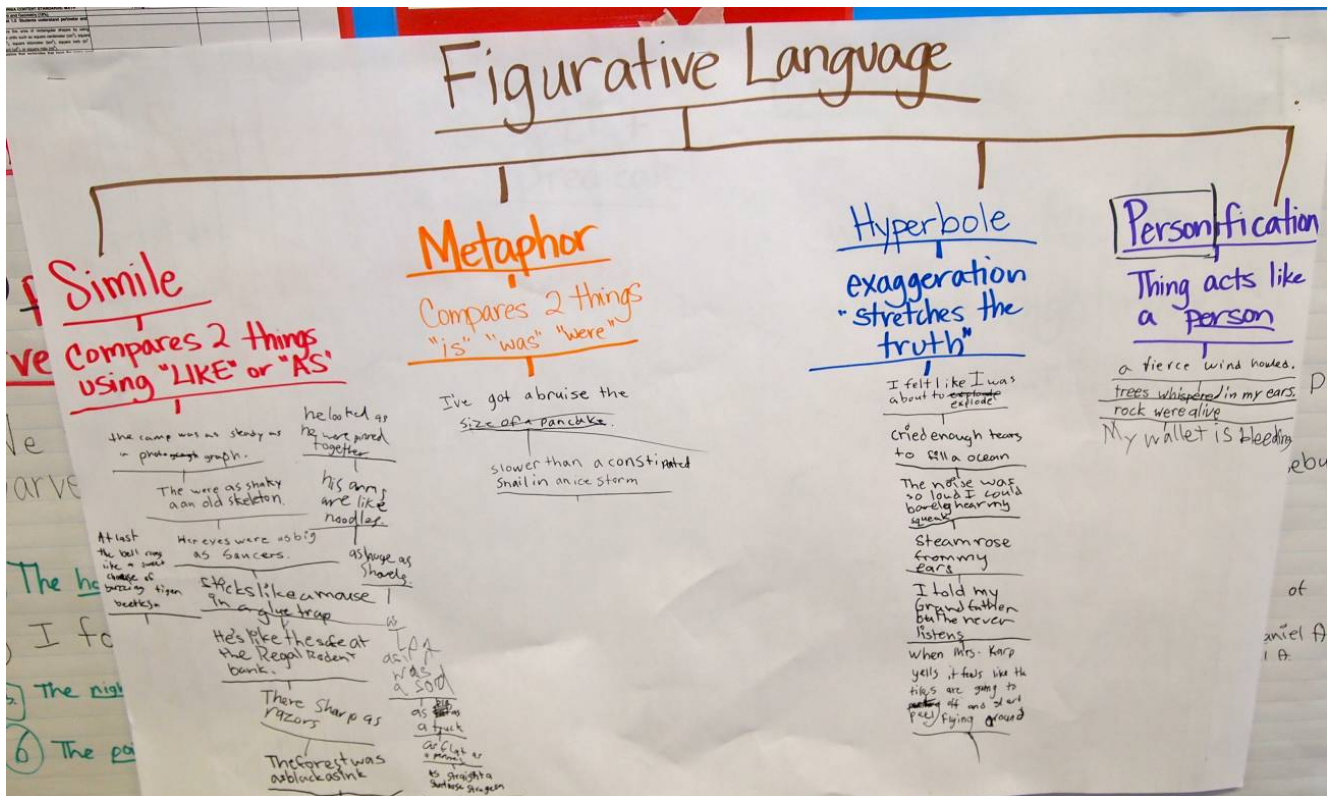 Figurative Language
Simile
Compares 2 things
using "LIKE" or "AS"
the camp was as steady as
in graph.
The were as shaky
aan old skeleton.
Her eyes were as big
as saucers.
At last
the bell rang
like a
of
buzzing tiger
beetles
sticks like a mouse
in a glue trap
He's like the safe at
the Regal Rodent
bank.
There Sharp as
razors
The forest was
as black as ink
he looked as
he were
together
his arms
are like
noodles.
as huge as
shovels.
as
was
as
a truck
as flat as
as straight a
Metaphor
Compares 2 things
"is" "was" "were"
I've got a bruise the
size of a pancake.
slower than a constipated
snail in an ice storm
Hyperbole
exaggeration
"stretches the
truth"
I felt like I was
about to explode
explode.
cried enough tears
to fill a ocean
The noise was
so loud I could
barely hear my
squeak
Steam rose
from my
ears
I told my
Grandfather
but he never
listens
when Mrs. Karp
yells it feels like the
tiles are going to
off and start
peel flying around
Personification
Thing acts like
a person
a fierce wind howled.
trees whispered in my ears.
rock were alive
My wallet is bleeding
The
I fo
The nig
6 The pa
of
aniel A